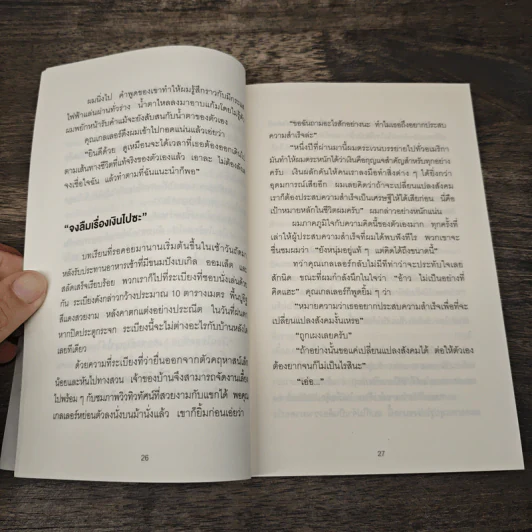 ผมนิ่งไป คำพูดของเขาทำให้ผมรู้สึกราวกับมีกระแส
ไฟฟ้าแล่นผ่านทั่วร่าง น้ำตาไหลลงมาอาบแก้มโดยไม่รู้ตัว
ผมพยักหน้ารับคำแม้จะยังสับสนกับน้ำตาของตัวเอง
คุณเกลเลอร์ดึงผมเข้าไปกอดแน่นแล้วเอ่ยว่า
"ยินดีด้วย ดูเหมือนจะได้เวลาที่เธอต้องออกเดินไป
ตามเส้นทางชีวิตที่แท้จริงของตัวเองแล้ว เอาละ ไม่ต้องห่วง
จงเชื่อใจฉัน แล้วทำตามที่ฉันแนะนำก็พอ"
"จงลืมเรื่องเงินไปซะ"
บทเรียนที่รอคอยมานานเริ่มต้นขึ้นในเช้าวันถัดมา
หลังรับประทานอาหารเช้าที่มีขนมปังเบเกิล ออมเล็ต และ
สลัดเสร็จเรียบร้อย พวกเราก็ไปที่ระเบียงที่ชอบนั่งเล่นด้วย
กัน ระเบียงดังกล่าวกว้างประมาณ 10 ตารางเมตร พื้นปูอิฐ
สีแดงสวยงาม หลังคาตกแต่งอย่างประณีต ในวันที่ฝนตก
หากปิดประตูกระจก ระเบียงนี้จะไม่ต่างอะไรกับบ้านหลังเล็ก
เลยทีเดียว
ด้วยความที่ระเบียงที่ว่ายื่นออกจากตัวคฤหาสน์เล็ก
น้อยและหันไปทางสวน เจ้าของบ้านจึงสามารถจัดงานเลี้ยง
ไปพร้อม ๆ กับชมภาพวิวทิวทัศน์ที่สวยงามกับแขกได้ พอคุณ
เกลเลอร์หย่อนตัวลงนั่งบนม้านั่งแล้ว เขาก็ยิ้มก่อนเอ่ยว่า
26
"ขอฉันถามอะไรสักอย่างนะ ทำไมเธอถึงอยากประสบ
ความสำเร็จล่ะ"
"หนึ่งปีที่ผ่านมานี้ผมตระเวนบรรยายไปทั่วอเมริกา
มันทำให้ผมตระหนักได้ว่าเงินคือกุญแจสำคัญสำหรับทุกอย่าง
ครับ เงินผลักดันให้คนเราลงมือทำสิ่งต่าง ๆ ได้ยิ่งกว่า
อุดมการณ์เสียอีก ผมเลยคิดว่าถ้าจะเปลี่ยนแปลงสังคม
เราก็ต้องประสบความสำเร็จเป็นเศรษฐีให้ได้เสียก่อน นี่คือ
เป้าหมายหลักในชีวิตผมครับ" ผมกล่าวอย่างหนักแน่น
ผมภาคภูมิใจกับความคิดนี้ของตัวเองมาก ทุกครั้งที่
เล่าให้ผู้ประสบความสำเร็จที่ผมได้พบพึงทีไร พวกเขาจะ
ชื่นชมผมว่า "ยังหนุ่มอยู่แท้ ๆ แต่คิดได้ถึงขนาดนี้"
ทว่าคุณเกลเลอร์กลับไม่มีทีท่าว่าจะประทับใจเลย
สักนิด ขณะที่ผมกำลังนึกในใจว่า "อ้าว ไม่เป็นอย่างที่
คิดแฮะ" คุณเกลเลอร์ก็พูดยิ้ม ๆ ว่า
"หมายความว่าเธออยากประสบความสำเร็จเพื่อที่จะ
เปลี่ยนแปลงสังคมงั้นเหรอ"
"ถูกเผงเลยครับ"
"ถ้าอย่างนั้นขอแค่เปลี่ยนแปลงสังคมได้ ต่อให้ตัวเอง
ต้องยากจนก็ไม่เป็นไรสินะ"
"เอ่อ..."
27